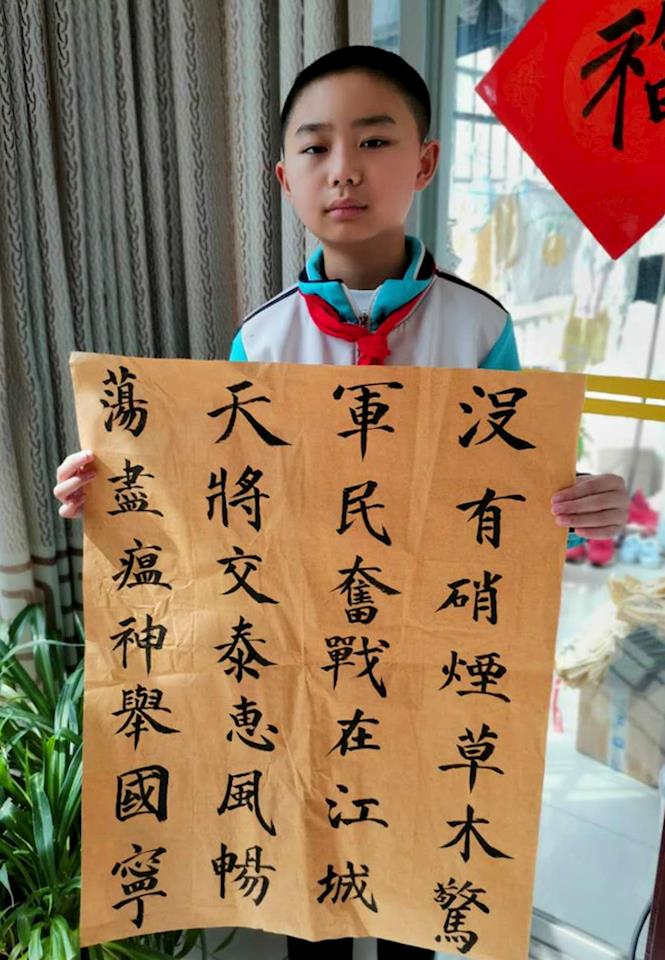 没有硝煙草木驚
軍民奮戰在江城
天將交泰惠風暢
蕩盡瘟神舉國寧
福